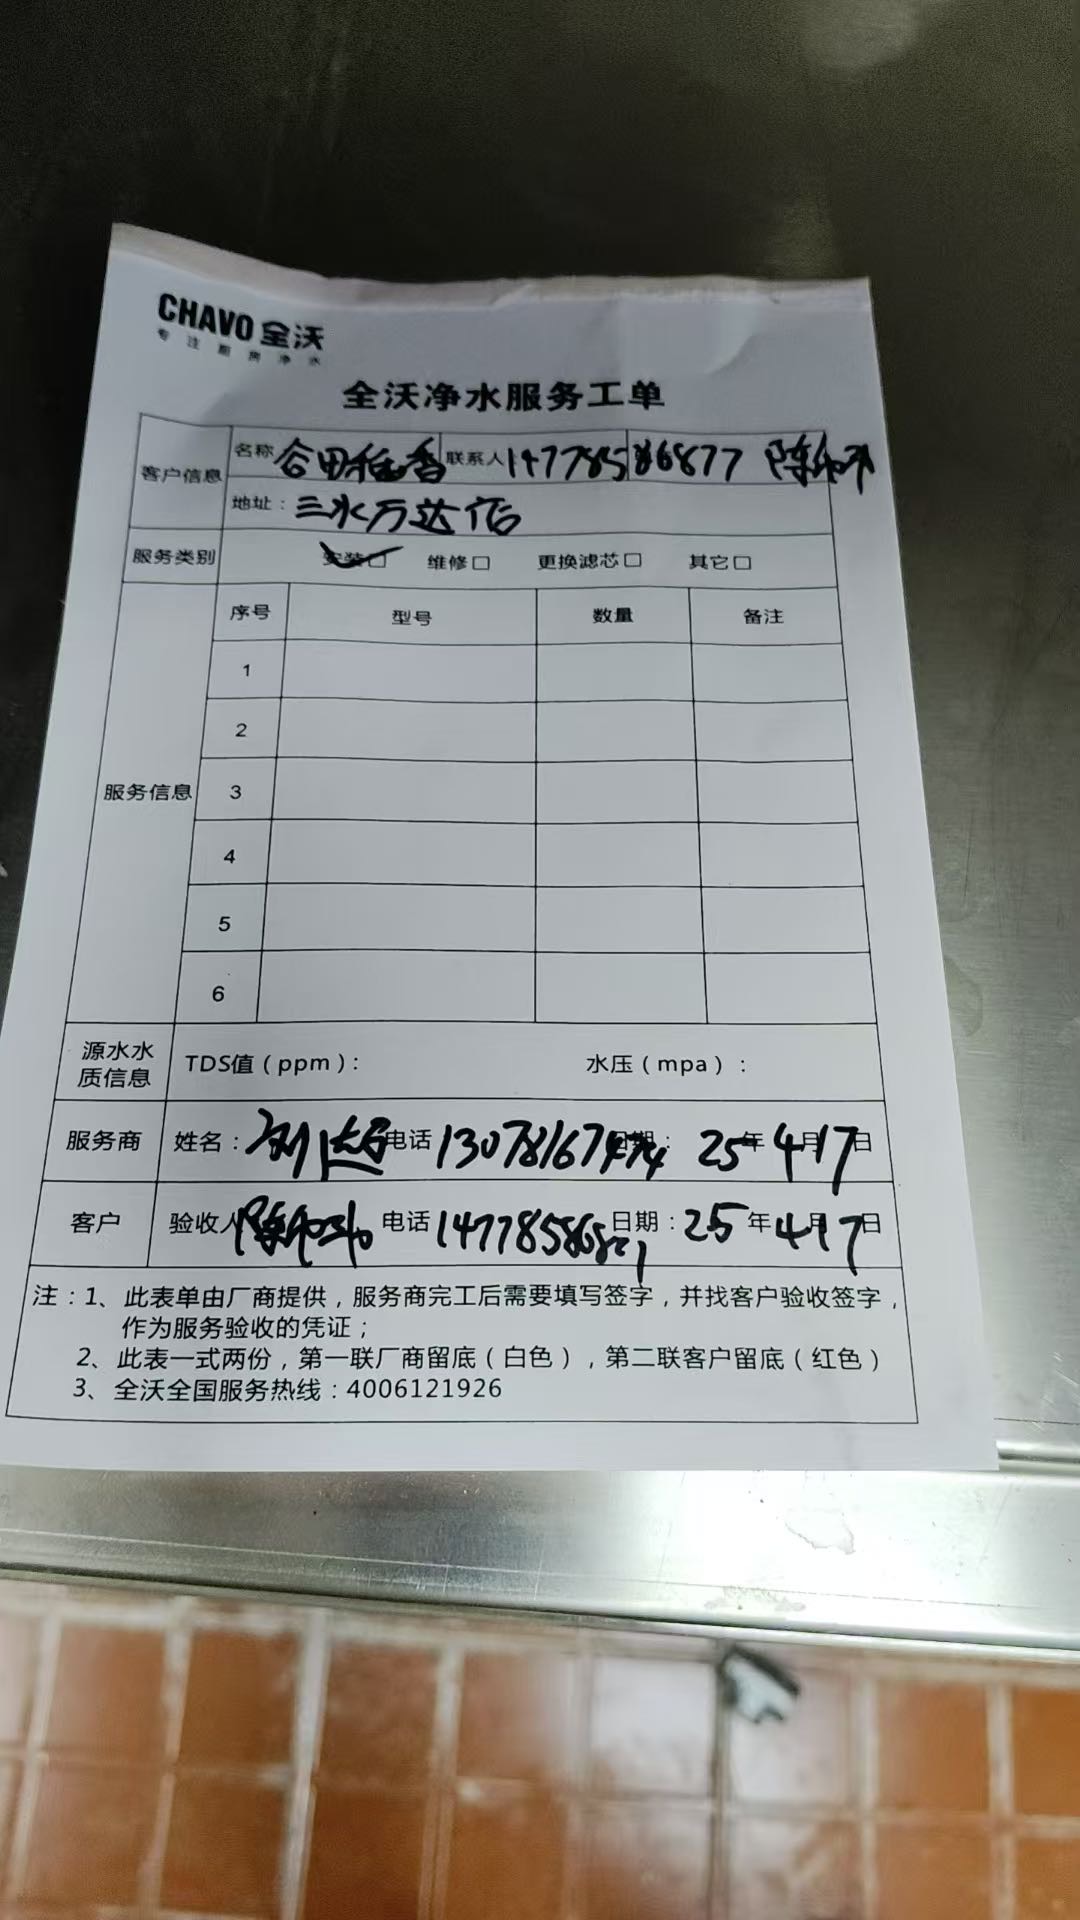 CHAVO 全沃
专注厨房净水
全沃净水服务工单
客户信息 名称 合田稻香 联系人 14778586877 陈
地址：三水万达店
服务类别 安装 维修 更换滤芯 其它
服务信息 序号 型号 数量 备注
1
2
3
4
5
6
源水水质信息 TDS值（ppm）： 水压（mpa）：
服务商 姓名：刘 电话 13078167474 日期：25年4月17日
客户 验收人 陈 电话 147785868 日期：25年4月17日
注：1、此表单由厂商提供，服务商完工后需要填写签字，并找客户验收签字，
作为服务验收的凭证；
2、此表一式两份，第一联厂商留底（白色），第二联客户留底（红色）
3、全沃全国服务热线：4006121926